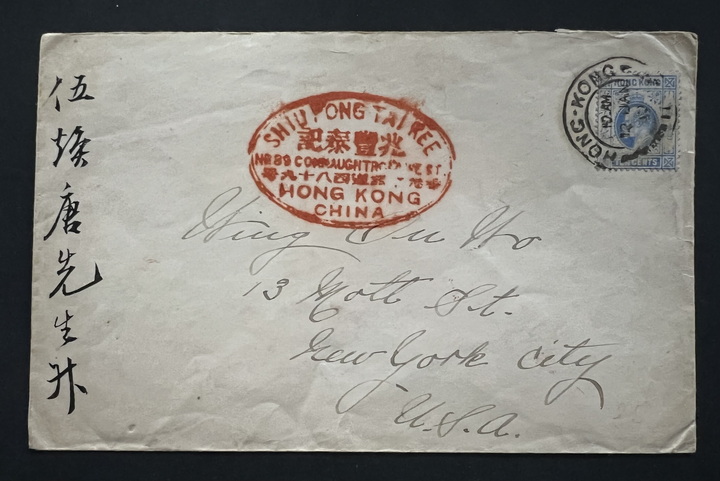 伍煥唐先生升
SHIU FONG TAI KEE
兆豐泰記
No 89 CONNAUGHT ROAD WEST
九十八四道
HONG KONG
CHINA
HONG-KONG
HONG KONG
TEN CENTS
Wing On Wo
13 Mott St.
New York City
U.S.A.